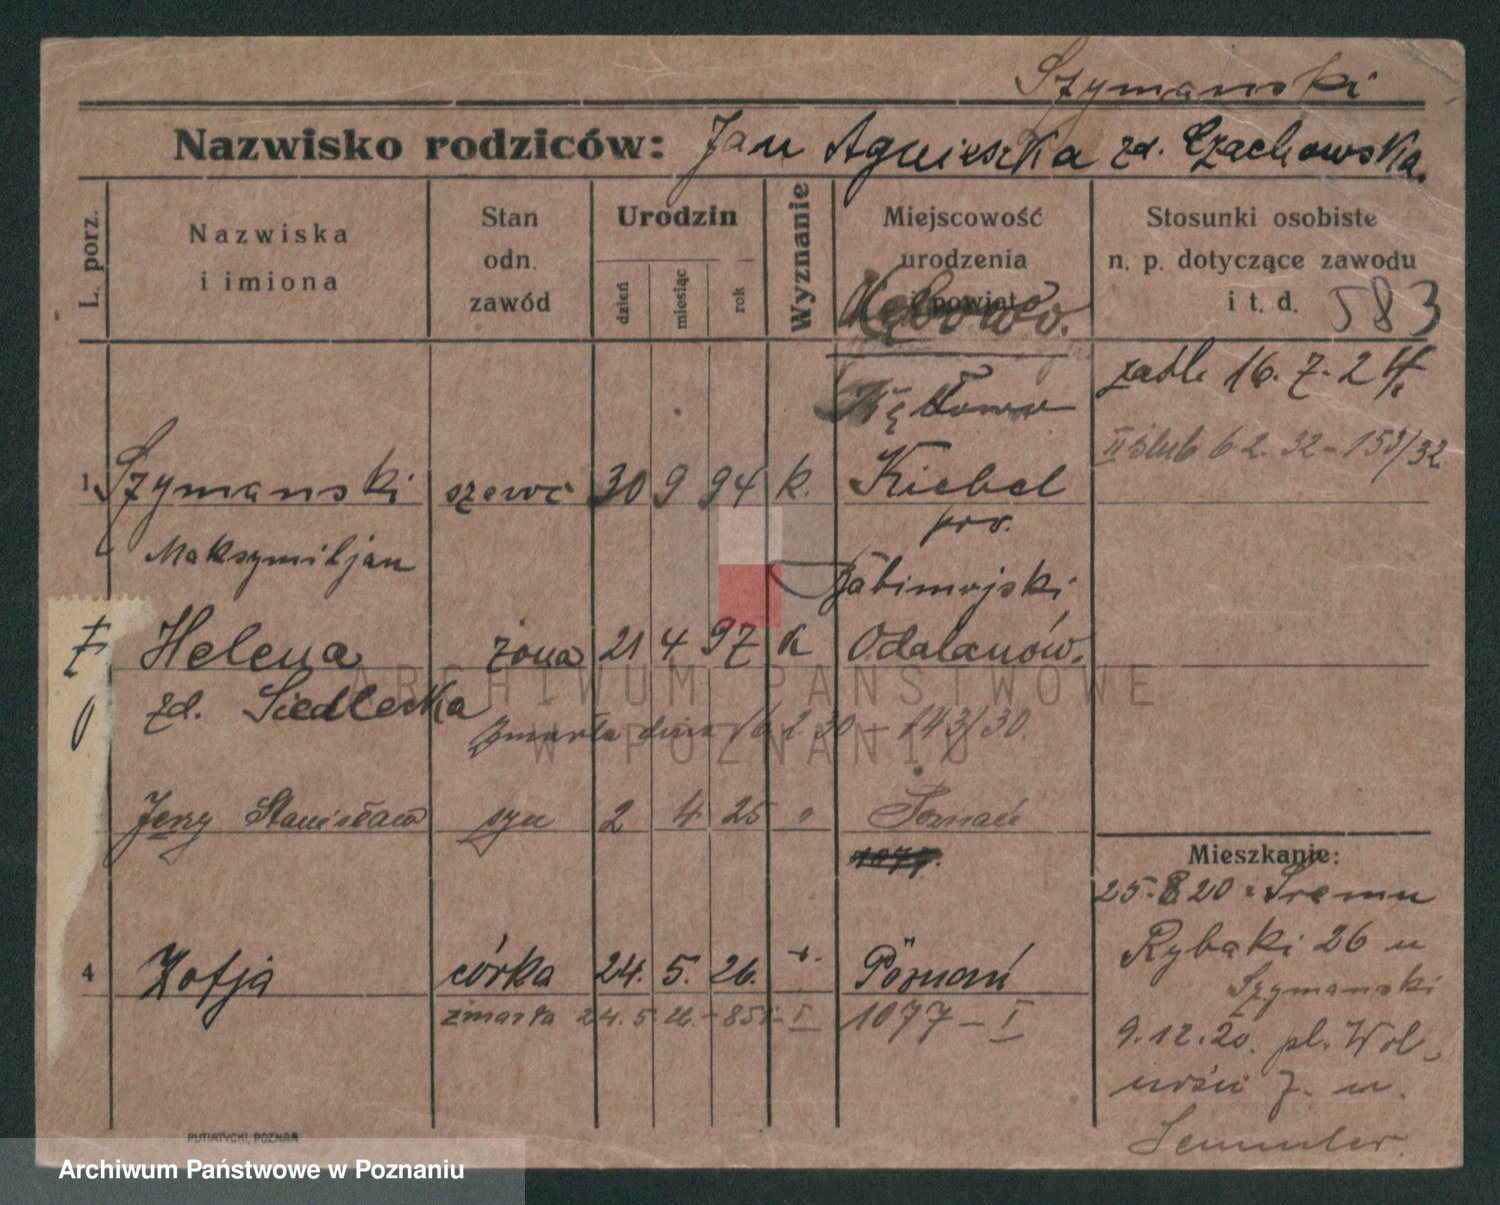 Szymanski
Nazwisko rodziców: Jan Agnieszka zd. Czachowska.
L. porz.
Nazwiska i imiona
Stan odn. zawód
Urodzin
dzień
miesiąc
rok
Wyznanie
Miejscowość urodzenia i powiat
Stosunki osobiste n. p. dotyczące zawodu i t. d. 583
Kębowo.
16. 7. 24
II ślub 6 2. 32 - 153/32.
1 Szymanski szewc 30 9 94 k. Kiebel
Maksymiljan
pow.
Babimojski
Helena żona 21 4 97 k Odalanów.
zd. Siedlecka
zmarła dnia 16 2 30 - 143/30.
Jerzy Stanisław syn 2 4 25 " Poznań
1077.
Mieszkanie:
25. 8 20 Śremu
Rybaki 26 u
Szymanski
4 Zofja córka 24. 5. 26. Poznań
zmarła 24. 5. 26. - 851 - I 1077 - I
9. 12. 20. pl. Wol-
ności 7. u.
PUTIATYCKI, POZNAŃ
ARCHIWUM PAŃSTWOWE
W POZNANIU
Archiwum Państwowe w Poznaniu